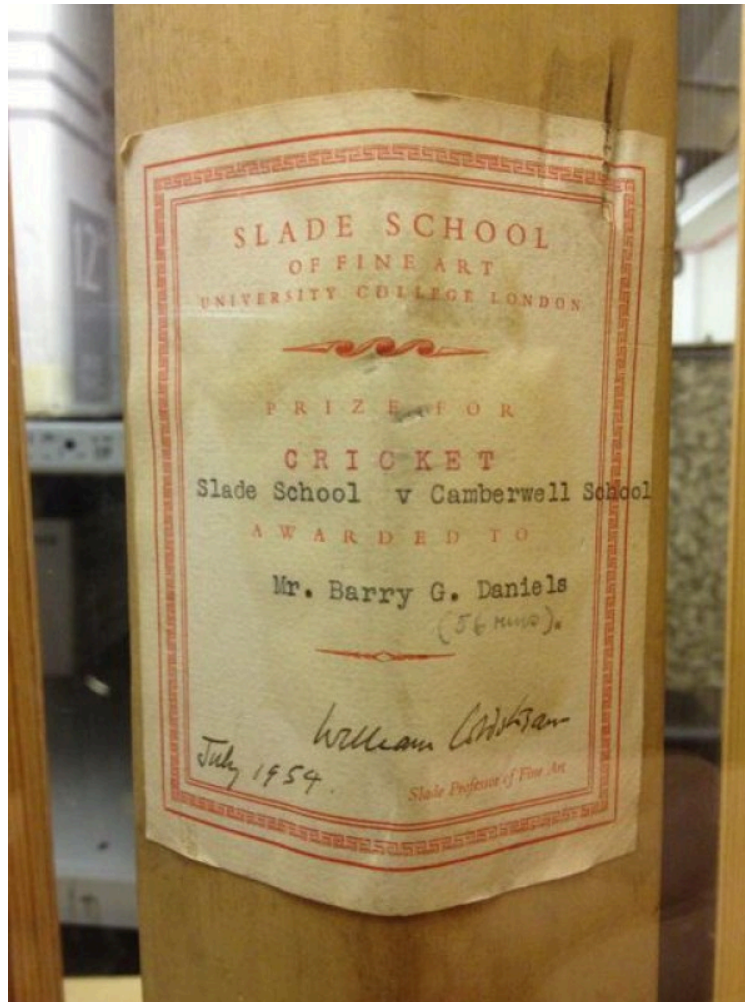 SLADE SCHOOL
OF FINE ART
UNIVERSITY COLLEGE LONDON
PRIZE FOR
CRICKET
Slade School v Camberwell School
AWARDED TO
Mr. Barry G. Daniels
(56 runs).
William Coldstream
July 1954.
Slade Professor of Fine Art
12"